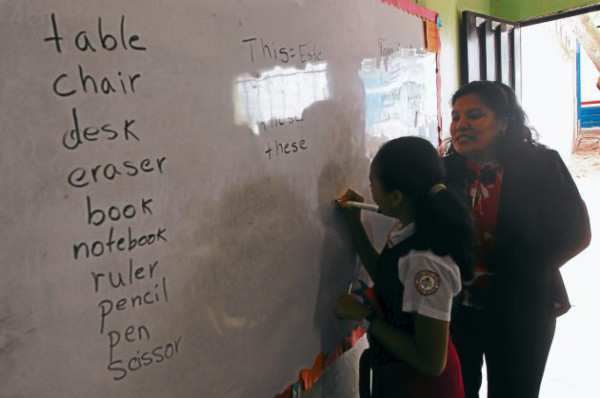 table
chair
desk
eraser
book
notebook
ruler
pencil
pen
scissor
This = Este
these